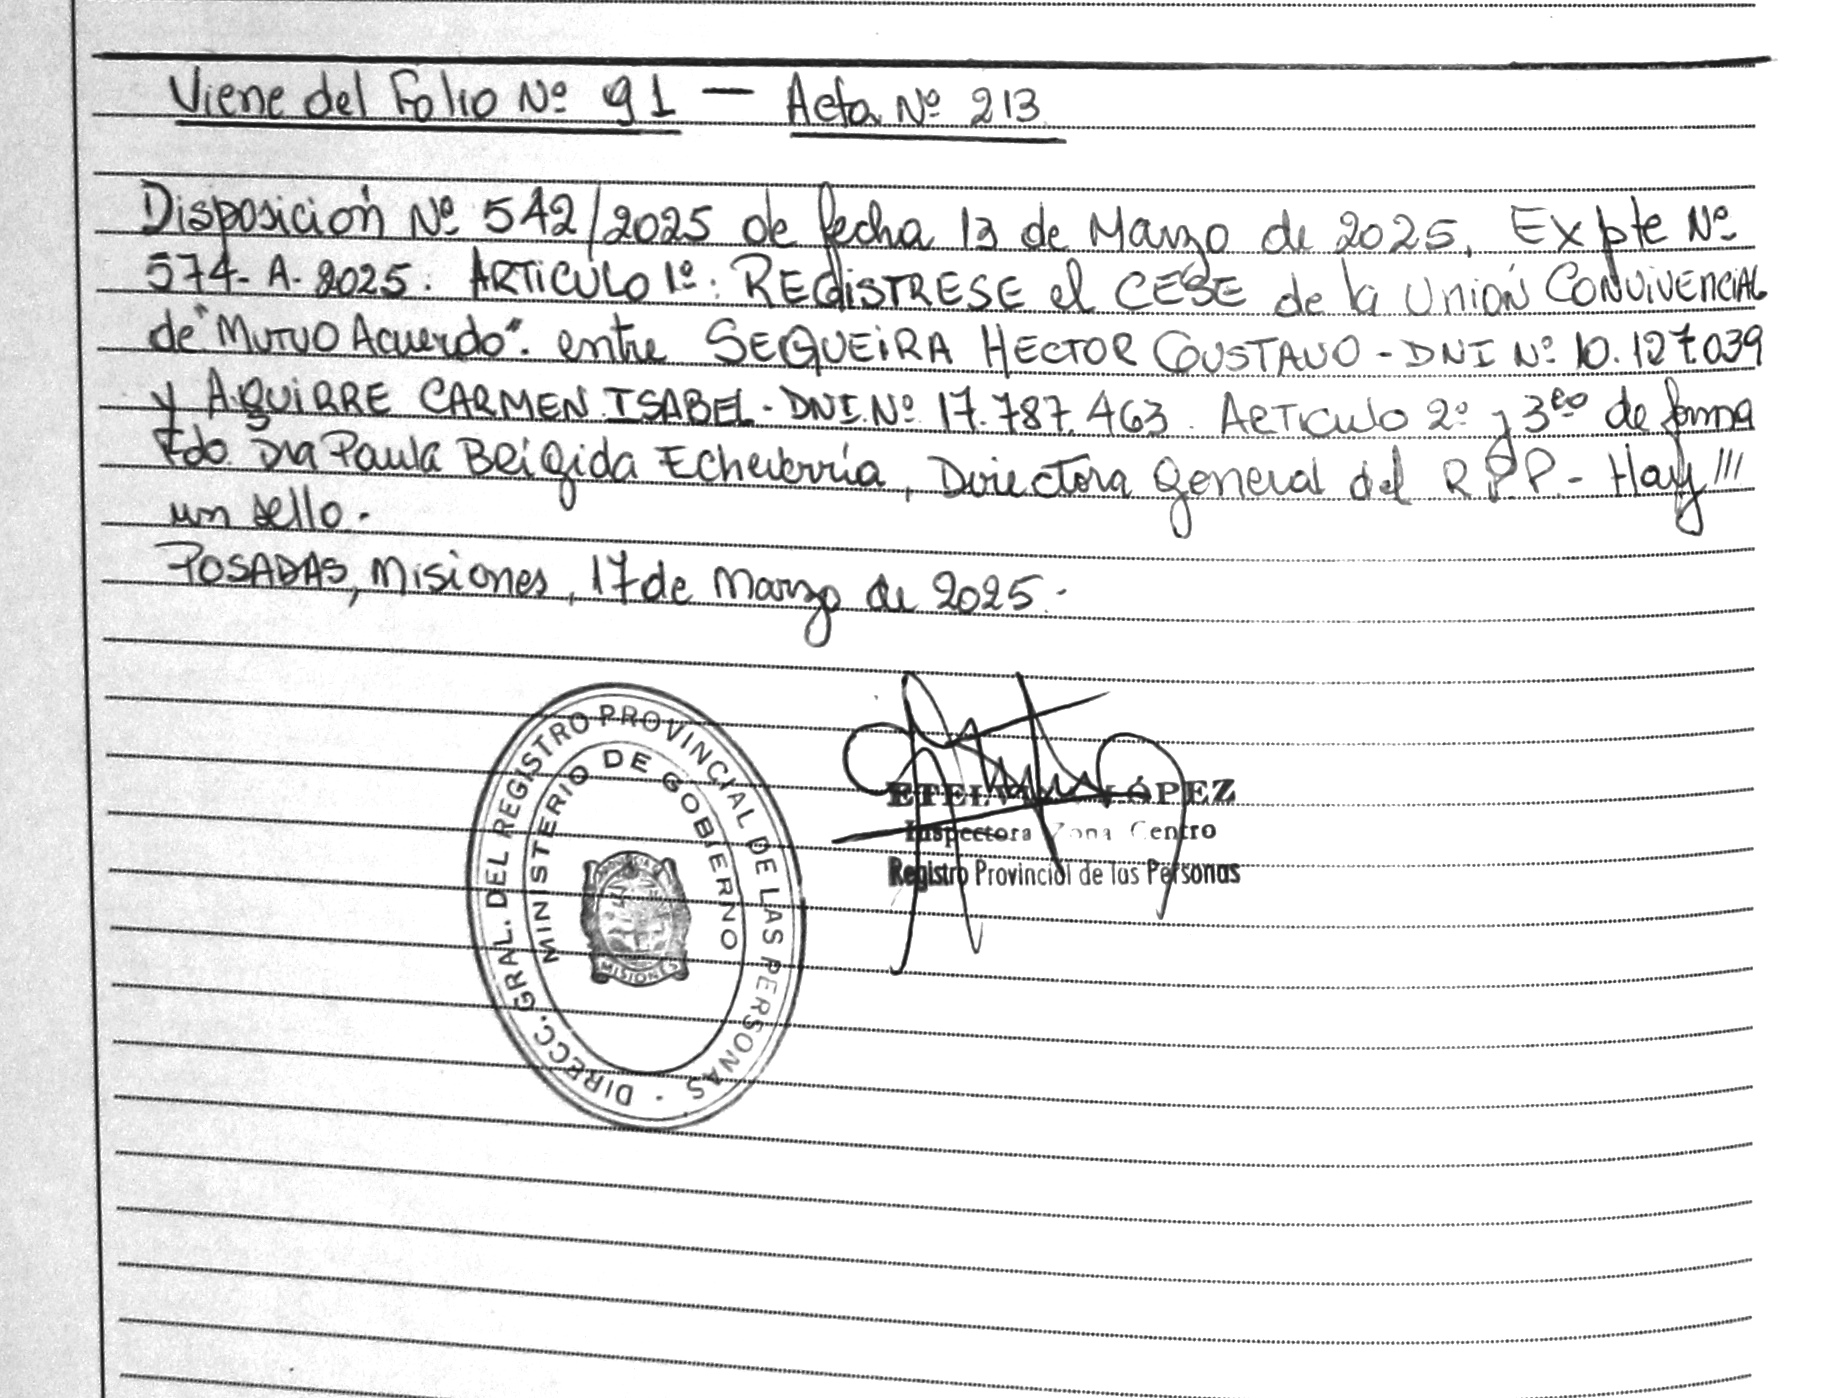 Viene del Folio Nº 91 — Acta Nº 213
Disposición Nº 542/2025 de fecha 13 de Marzo de 2025. Expte Nº
574-A-2025. ARTICULO 1º: REGISTRESE el CESE de la UNIÓN CONVIVENCIAL
de "MUTUO Acuerdo". entre SEQUEIRA HECTOR GUSTAVO - DNI Nº 10.127.039
y AGUIRRE CARMEN ISABEL - DNI. Nº 17.787.463. ARTICULO 2º y 3ero de forma
Fdo. Dra Paula Brigida Echeverría, Directora General del R.P.P. - Hay///
un sello.-
POSADAS, Misiones, 17 de Marzo de 2025.-
DIRECC. GRAL. DEL REGISTRO PROVINCIAL DE LAS PERSONAS -
MINISTERIO DE GOBIERNO
PROVINCIA
MISIONES
LÓPEZ
Inspectora Zona Centro
Registro Provincial de las Personas